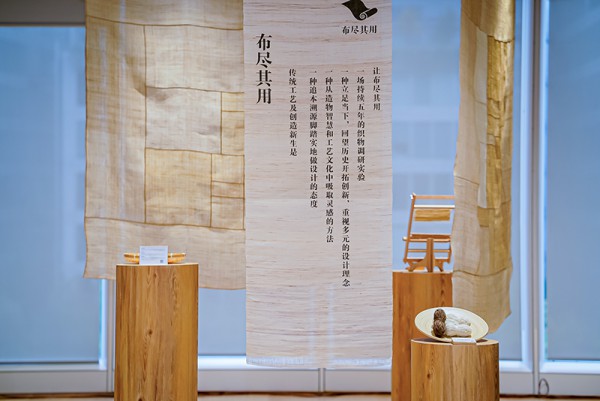 布尽其用
让布尽其用
一场持续五年的织物调研实验
一种立足当下，回望历史开拓创新，重视多元的设计理念
一种从造物智慧和工艺文化中吸取灵感的方法
一种追本溯源脚踏实地做设计的态度
传统工艺及创造新生是
布尽其用